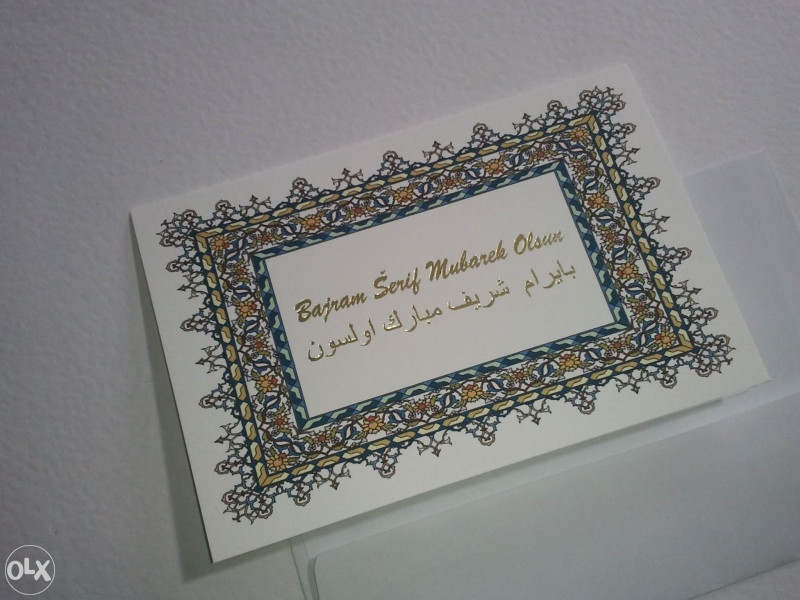 Bajram Šerif Mubarek Olsun
بايرام شريف مبارك اولسون
OLX